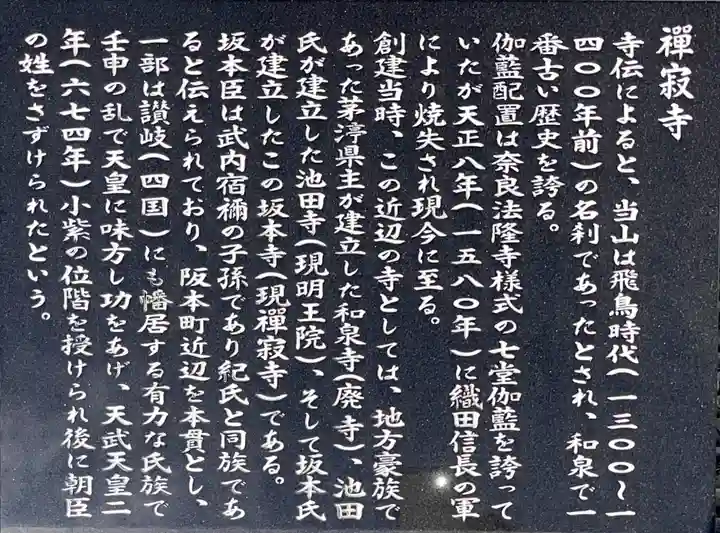 禪寂寺
寺伝によると、当山は飛鳥時代(一三〇〇〜一
四〇〇年前)の名刹であったとされ、和泉で一
番古い歴史を誇る。
伽藍配置は奈良法隆寺様式の七堂伽藍を誇って
いたが天正八年(一五八〇年)に織田信長の軍
により焼失され現今に至る。
創建当時、この近辺の寺としては、地方豪族で
あった茅渟県主が建立した和泉寺(廃寺)、池田
氏が建立した池田寺(現明王院)、そして坂本氏
が建立したこの坂本寺(現禪寂寺)である。
坂本臣は武内宿禰の子孫であり紀氏と同族であ
ると伝えられており、阪本町近辺を本貫とし、
一部は讃岐(四国)にも幡居する有力な氏族で
壬申の乱で天皇に味方し功をあげ、天武天皇二
年(六七四年)小紫の位階を授けられ後に朝臣
の姓をさずけられたという。